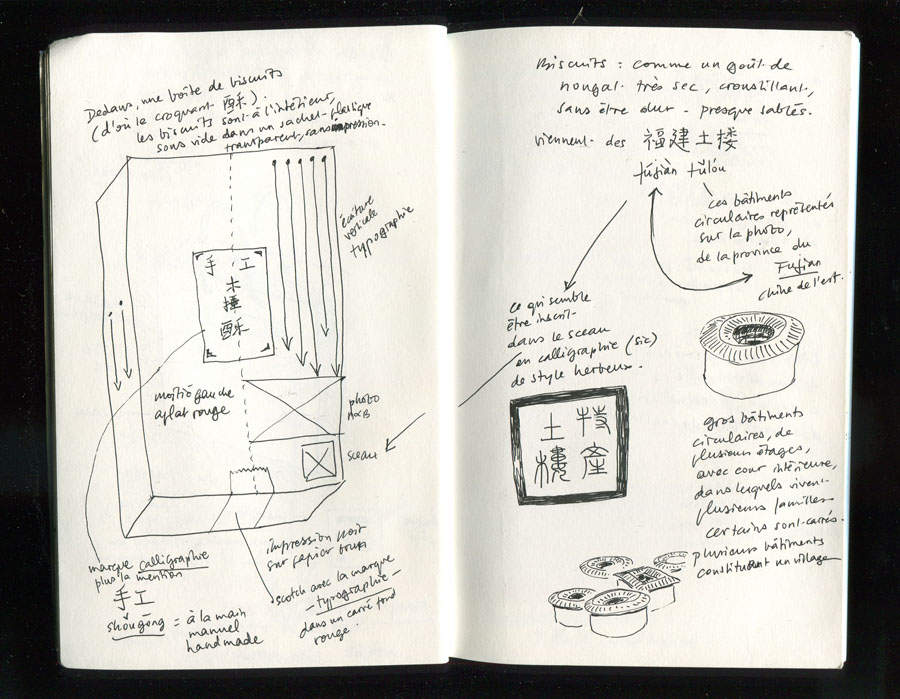 Dedans, une boîte de biscuits
(d'où le croquant 酥).
les biscuits sont à l'intérieur,
sous vide dans un sachet plastique
transparent, sans impression.
écriture
verticale
typographie
手 工
木
捶
酥
moitié gauche
aplat rouge
photo
N&B
sceau
marque calligraphie
plus la mention
手工
shǒugōng = à la main
manuel
handmade
impression noir
sur papier brun
scotch avec la marque
- typographie -
dans un carré fond
rouge.
Biscuits : comme un goût de
nougat très sec, croustillant,
sans être dur - presque sablés.
viennent des 福建土楼
fújiàn tǔlóu
ces bâtiments
circulaires représentés
sur la photo,
de la province du
Fujian
Chine de l'est.
ce qui semble
être inscrit
dans le sceau
en calligraphie (sic)
de style herbeux.
土 特
樓 產
gros bâtiments
circulaires, de
plusieurs étages,
avec cour intérieure,
dans lesquels vivent
plusieurs familles
certains sont carrés.
plusieurs bâtiments
constituant un village